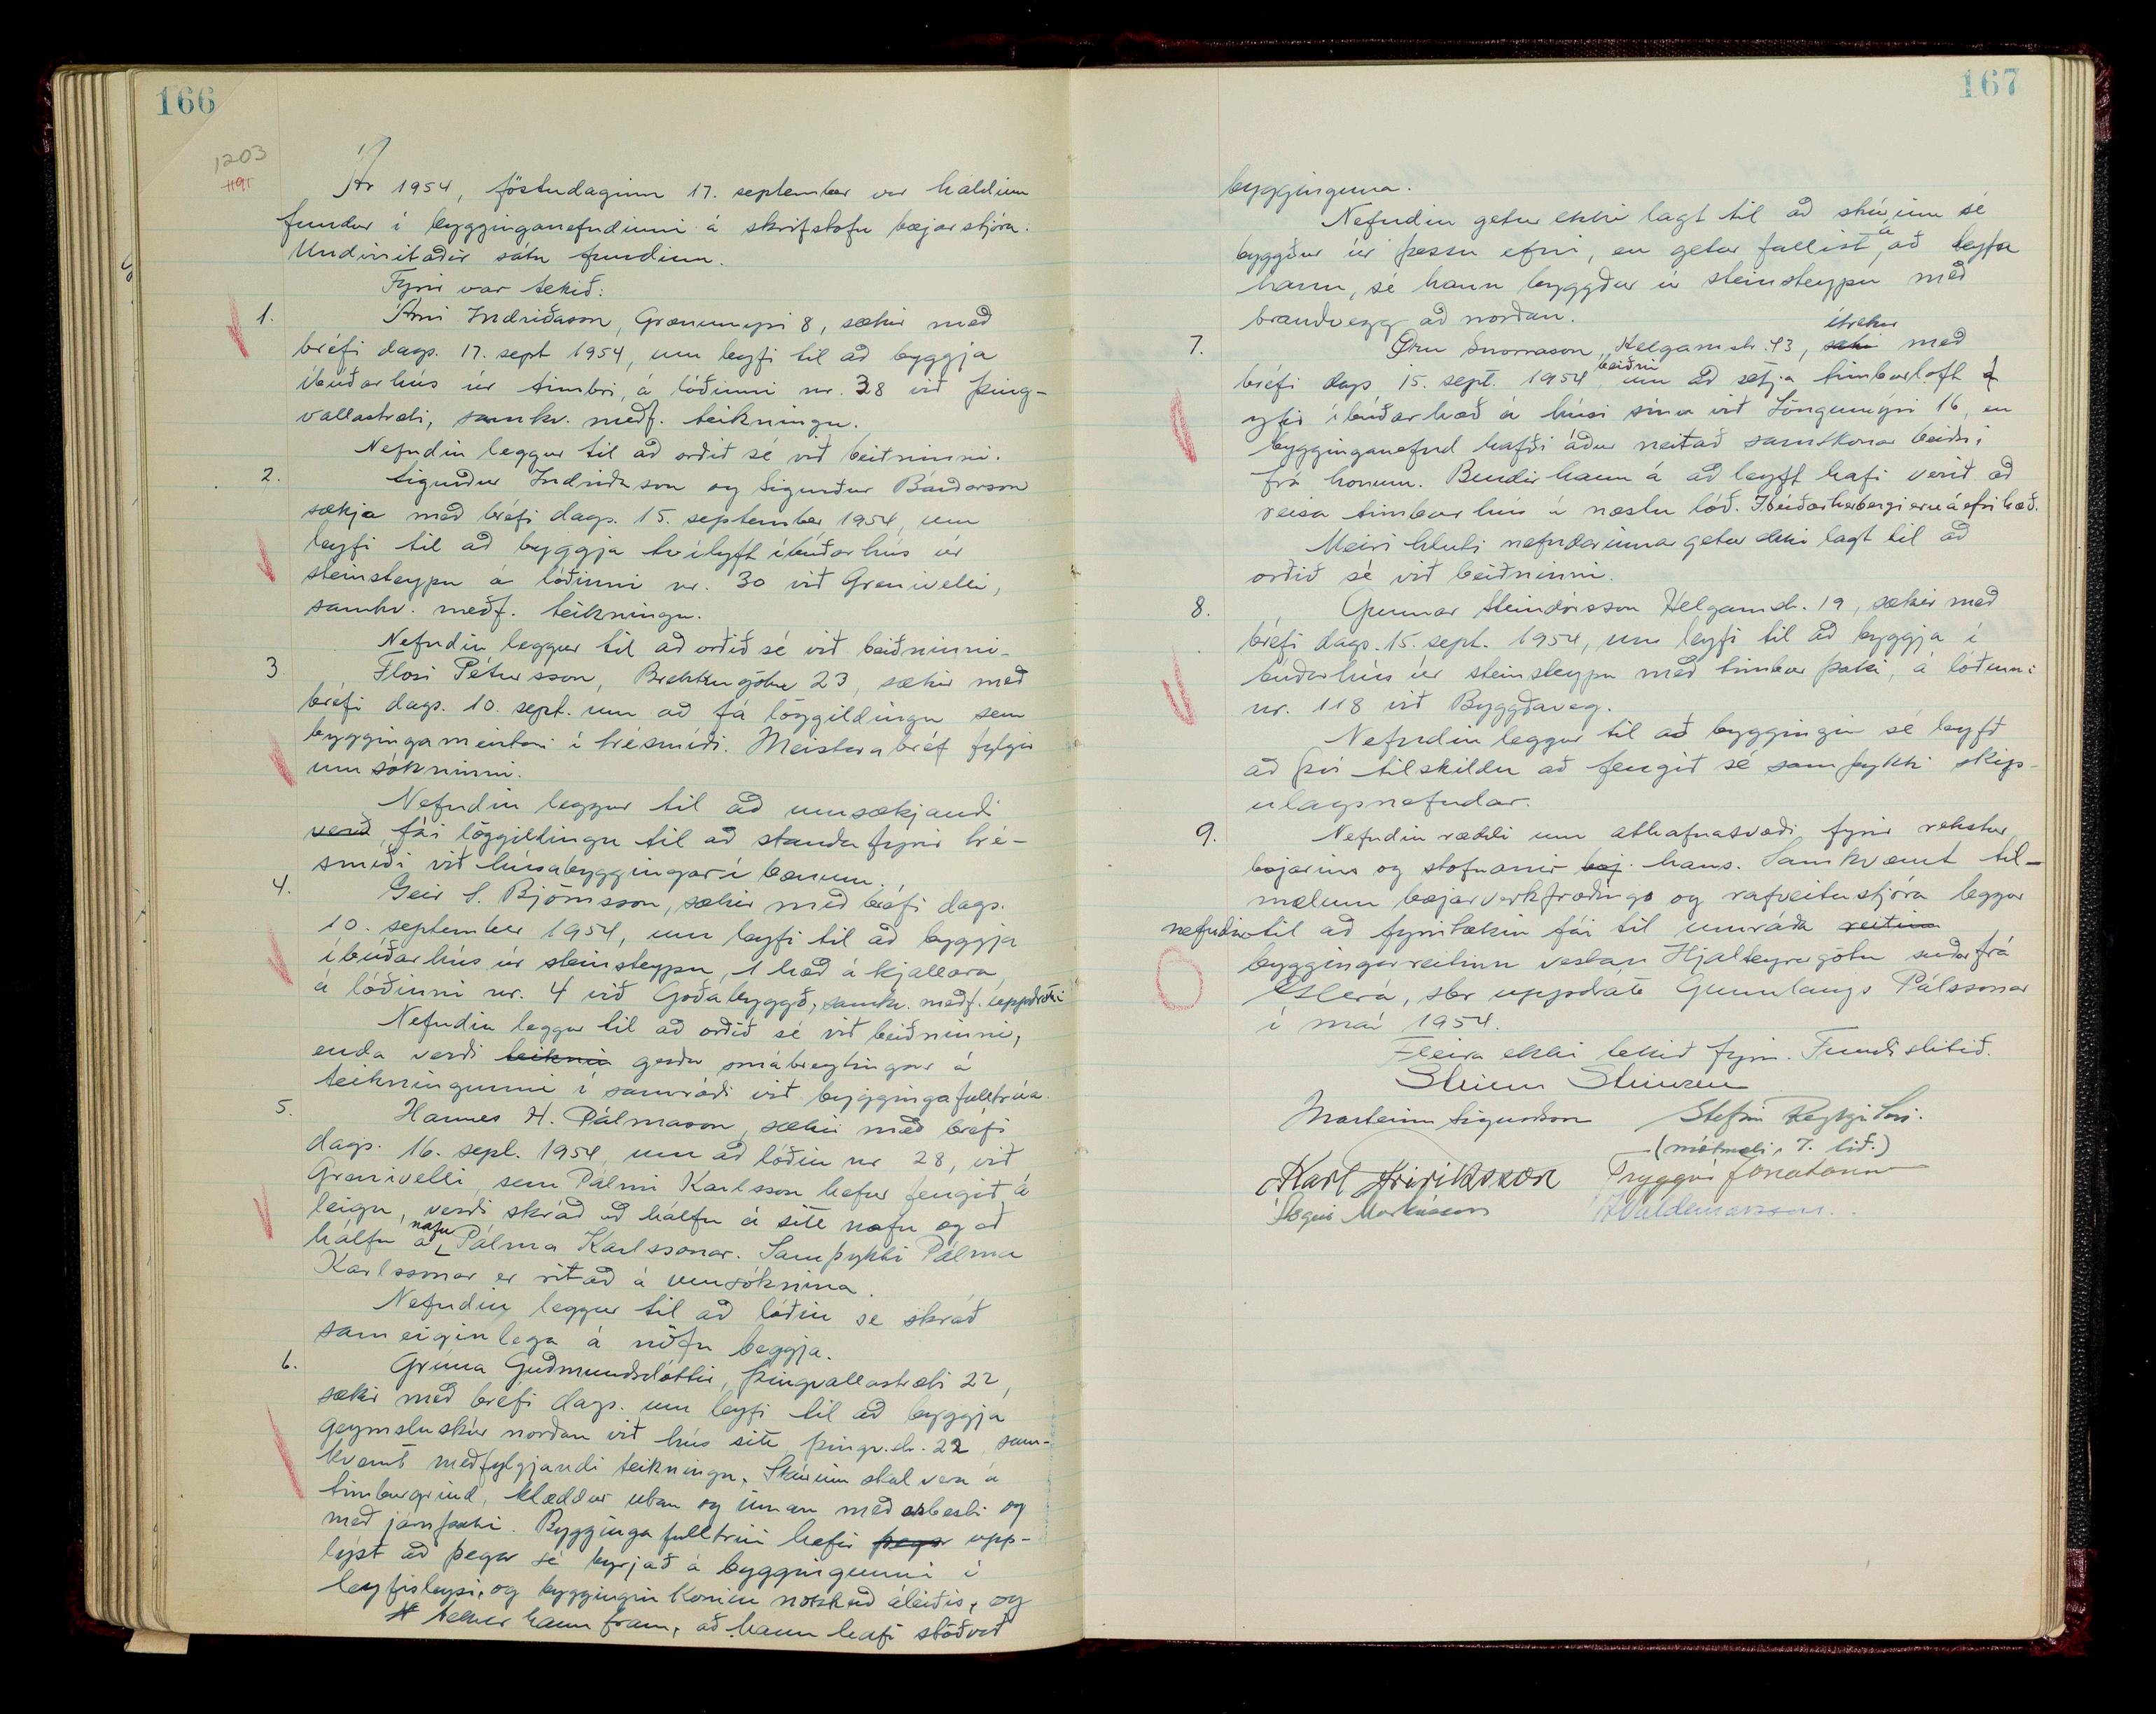 166
1203
Ár 1954, föstudaginn 17. september var haldinn
fundur í bygginganefndinni á skrifstofu bæjarstjóra.
Undirritaðir sátu fundinn.
Fyrir var tekið:
1. Árni Indriðason, Grænumýri 8, sækir með
bréfi dags. 17. sept 1954, um leyfi til að byggja
íbúðarhús úr timbri, á lóðinni nr. 38 við Þing-
vallastræti, samkv. meðf. teikningu.
Nefndin leggur til að orðið sé við beiðninni.
2. Sigurður Indriðason og Sigurður Bárðarson
sækja með bréfi dags. 15. september 1954, um
leyfi til að byggja tvílyft íbúðarhús úr
steinsteypu á lóðinni nr. 30 við Grenivelli,
samkv. meðf. teikningu.
Nefndin leggur til að orðið sé við beiðninni.
3 Flosi Pétursson, Brekkugötu 23, sækir með
bréfi dags. 10. sept. um að fá löggildingu sem
byggingameistari í trésmíði. Meistarabréf fylgir
umsókninni.
Nefndin leggur til að umsækjandi
verð fái löggildingu til að standa fyrir tré-
smíði við húsabyggingar í bænum.
4. Geir S. Björnsson, sækir með bréfi dags.
10. september 1954, um leyfi til að byggja
íbúðarhús úr steinsteypu, 1 hæð á kjallara
á lóðinni nr. 4 við Goðabyggð, samkv. meðf. uppdrætti
Nefndin leggur til að orðið sé við beiðninni,
enda verði teiknin gerðar smábreytingar á
teikningunni í samráði við byggingafulltrúa.
5. Hannes H. Pálmason, sækir með bréfi
dags. 16. sept. 1954, um að lóðin nr 28, við
Grenivelli, sem Pálmi Karlsson hefur fengið á
leigu, verði skráð að hálfu á sitt nafn og að
hálfu á nafn Pálma Karlssonar. Samþykki Pálma
Karlssonar er ritað á umsóknina.
Nefndin leggur til að lóðin sé skráð
sameiginlega á nöfn beggja.
6. Gríma Guðmundsdóttir, Þingvallastræti 22,
sækir með bréfi dags. um leyfi til að byggja
geymsluskúr norðan við hús sitt, Þingv.str. 22, sam-
kvæmt meðfylgjandi teikningu. Skúrinn skal vera á
timburgrind, klæddur utan og innan með asbesti og
með járnþaki. Bygginga fulltrúi hefir þegar upp-
lýst að þegar sé byrjað á byggingunni í
leyfisleysi, og byggingin komin nokkuð áleiðis, og
tekur hann fram, að hann hafi stöðvað
167
bygginguna.
Nefndin getur ekki lagt til að skúrinn sé
byggður úr þessu efni, en getur fallist á að leyfa
hann, sé hann byggður úr steinsteypu með
brandvegg að norðan.
7. Örn Snorrason, Helgamstr. 43, sæki ítrekar með
bréfi dags 15. sept. 1954 beiðni um að setja timburloft
yfir íbúðarhæð á húsi sínu við Löngumýri 16, en
bygginganefnd hafði áður neitað samskonar beiðni
frá honum. Bendir hann á að leyft hafi verið að
reisa timburhús á næstu lóð. Íbúðarherbergi eru á efri hæð.
Meiri hluti nefndarinnar getur ekki lagt til að
orðið sé við beiðninni.
8. Gunnar Steindórsson Helgamstr. 19, sækir með
bréfi dags. 15. sept. 1954, um leyfi til að byggja í
búðarhús úr steinsteypu með timbur þaki, á lóðinni
nr. 118 við Byggðaveg.
Nefndin leggur til að byggingin sé leyfð
að því tilskildu að fengið sé samþykki skip-
ulagsnefndar.
9. Nefndin ræddi um athafnasvæði fyrir rekstur
bæjarins og stofnanir bæj. hans. Samkvæmt til-
mælum bæjarverkfræðings og rafveitustjóra leggur
nefndin til að fyrirtækin fái til umráða reitinn
byggingarreitinn vestan Hjalteyrargötu suður frá
Glerá, sbr uppdrátt Gunnlaugs Pálssonar
í maí 1954.
Fleira ekki tekið fyrir. Fundi slitið.
Steinn Steinsen
Marteinn Sigurðsson Stefán Reykjalín.
(mótmæli 7. lið.)
Karl Friðriksson Tryggvi Jónatansson
Ásgeir Markússon